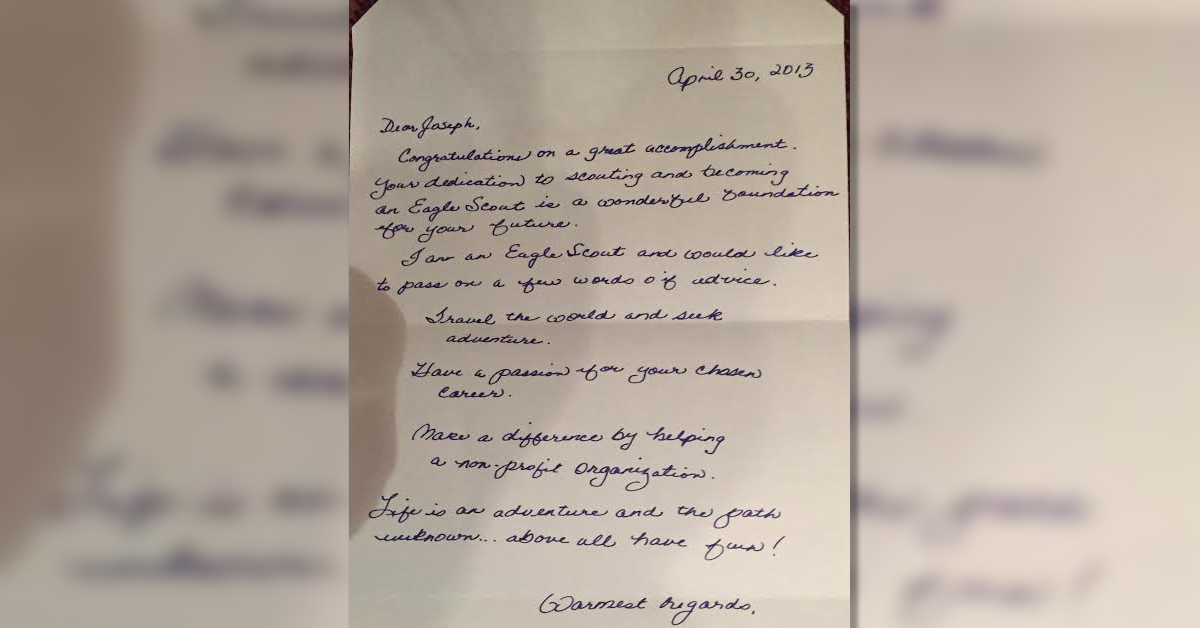 April 30, 2013
Dear Joseph,
Congratulations on a great accomplishment.
Your dedication to scouting and becoming
an Eagle Scout is a wonderful foundation
for your future.
I am an Eagle Scout and would like
to pass on a few words of advice.
Travel the world and seek
adventure.
Have a passion for your chosen
career.
Make a difference by helping
a non-profit organization.
Life is an adventure and the path
unknown... above all have fun!
Warmest regards,